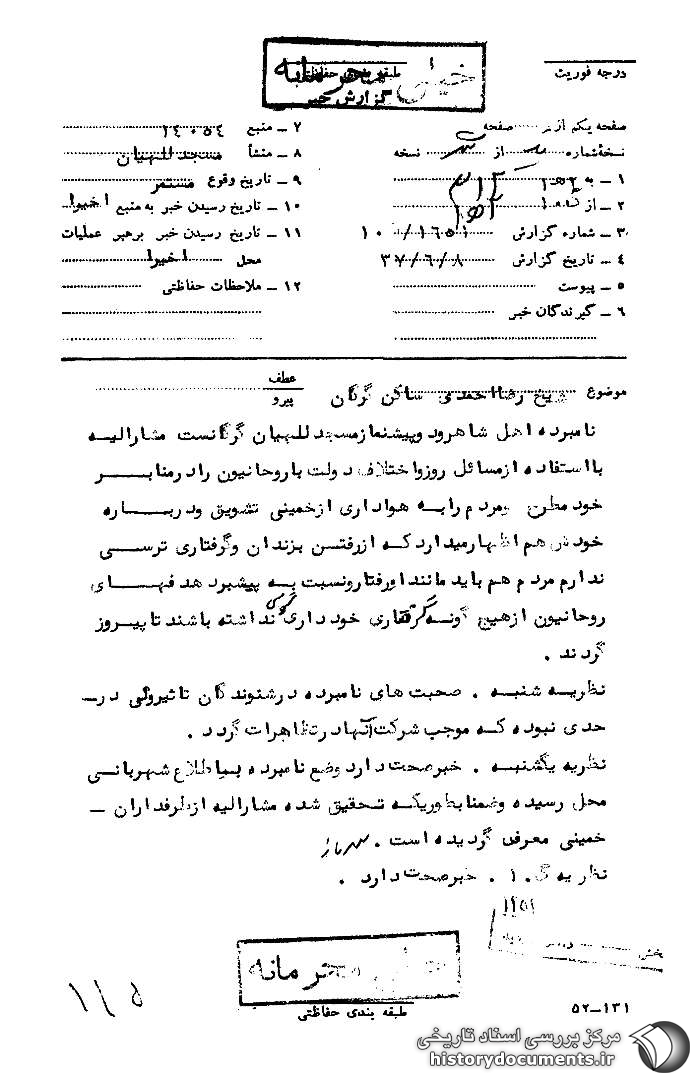 خیلی محرمانه
طبقه بندی حفاظتی
گزارش خبر
درجه فوریت
صفحه یکم از صفحه
نسخهٔ شماره از نسخه
۱ ـ به ۳۱۲
۲ ـ از
۳ ـ شماره گزارش ۱۶۵۱/۱۰
۴ ـ تاریخ گزارش ۳۷/۶/۸
۵ ـ پیوست
۶ ـ گیرندگان خبر
۷ ـ منبع ۱۴۰۵۴
۸ ـ منشأ مسجد للهیان
۹ ـ تاریخ وقوع مستمر
۱۰ ـ تاریخ رسیدن خبر به منبع اخیرا
۱۱ ـ تاریخ رسیدن خبر برهبر عملیات
محل اخیرا
۱۲ ـ ملاحظات حفاظتی
موضوع شیخ رضا احمدی ساکن گرگان
عطف
پیرو
نامبرده اهل شاهرود و پیشنماز مسجد للهیان گرگانست مشارالیه
با استفاده از مسائل روز و اختلاف دولت با روحانیون را در منابر
خود مطرح و مردم را به هواداری از خمینی تشویق و درباره
خودش هم اظهار میدارد که از رفتن بزندان و گرفتاری ترسی
ندارم مردم هم باید مانند او رفتار و نسبت به پیشبرد هدفهای
روحانیون از هیچ گونه گرفتاری خودداری نداشته باشند تا پیروز
گردند .
نظریه شنبه . صحبت های نامبرده در شنوندگان تاثیر ولی در ـ
حدی نبوده که موجب شرکت آنها در تظاهرات گردد .
نظریه یکشنبه . خبر صحت دارد وضع نامبرده باطلاع شهربانی
محل رسیده و ضمنا بطوریکه تحقیق شده مشارالیه از طرفداران ـ
خمینی معرفی گردیده است .
نظریه گ . ۱ . خبر صحت دارد .
بخش
خیلی محرمانه
طبقه بندی حفاظتی
۵۲ـ۱۳۱
مرکز بررسی اسناد تاریخی
historydocuments.ir